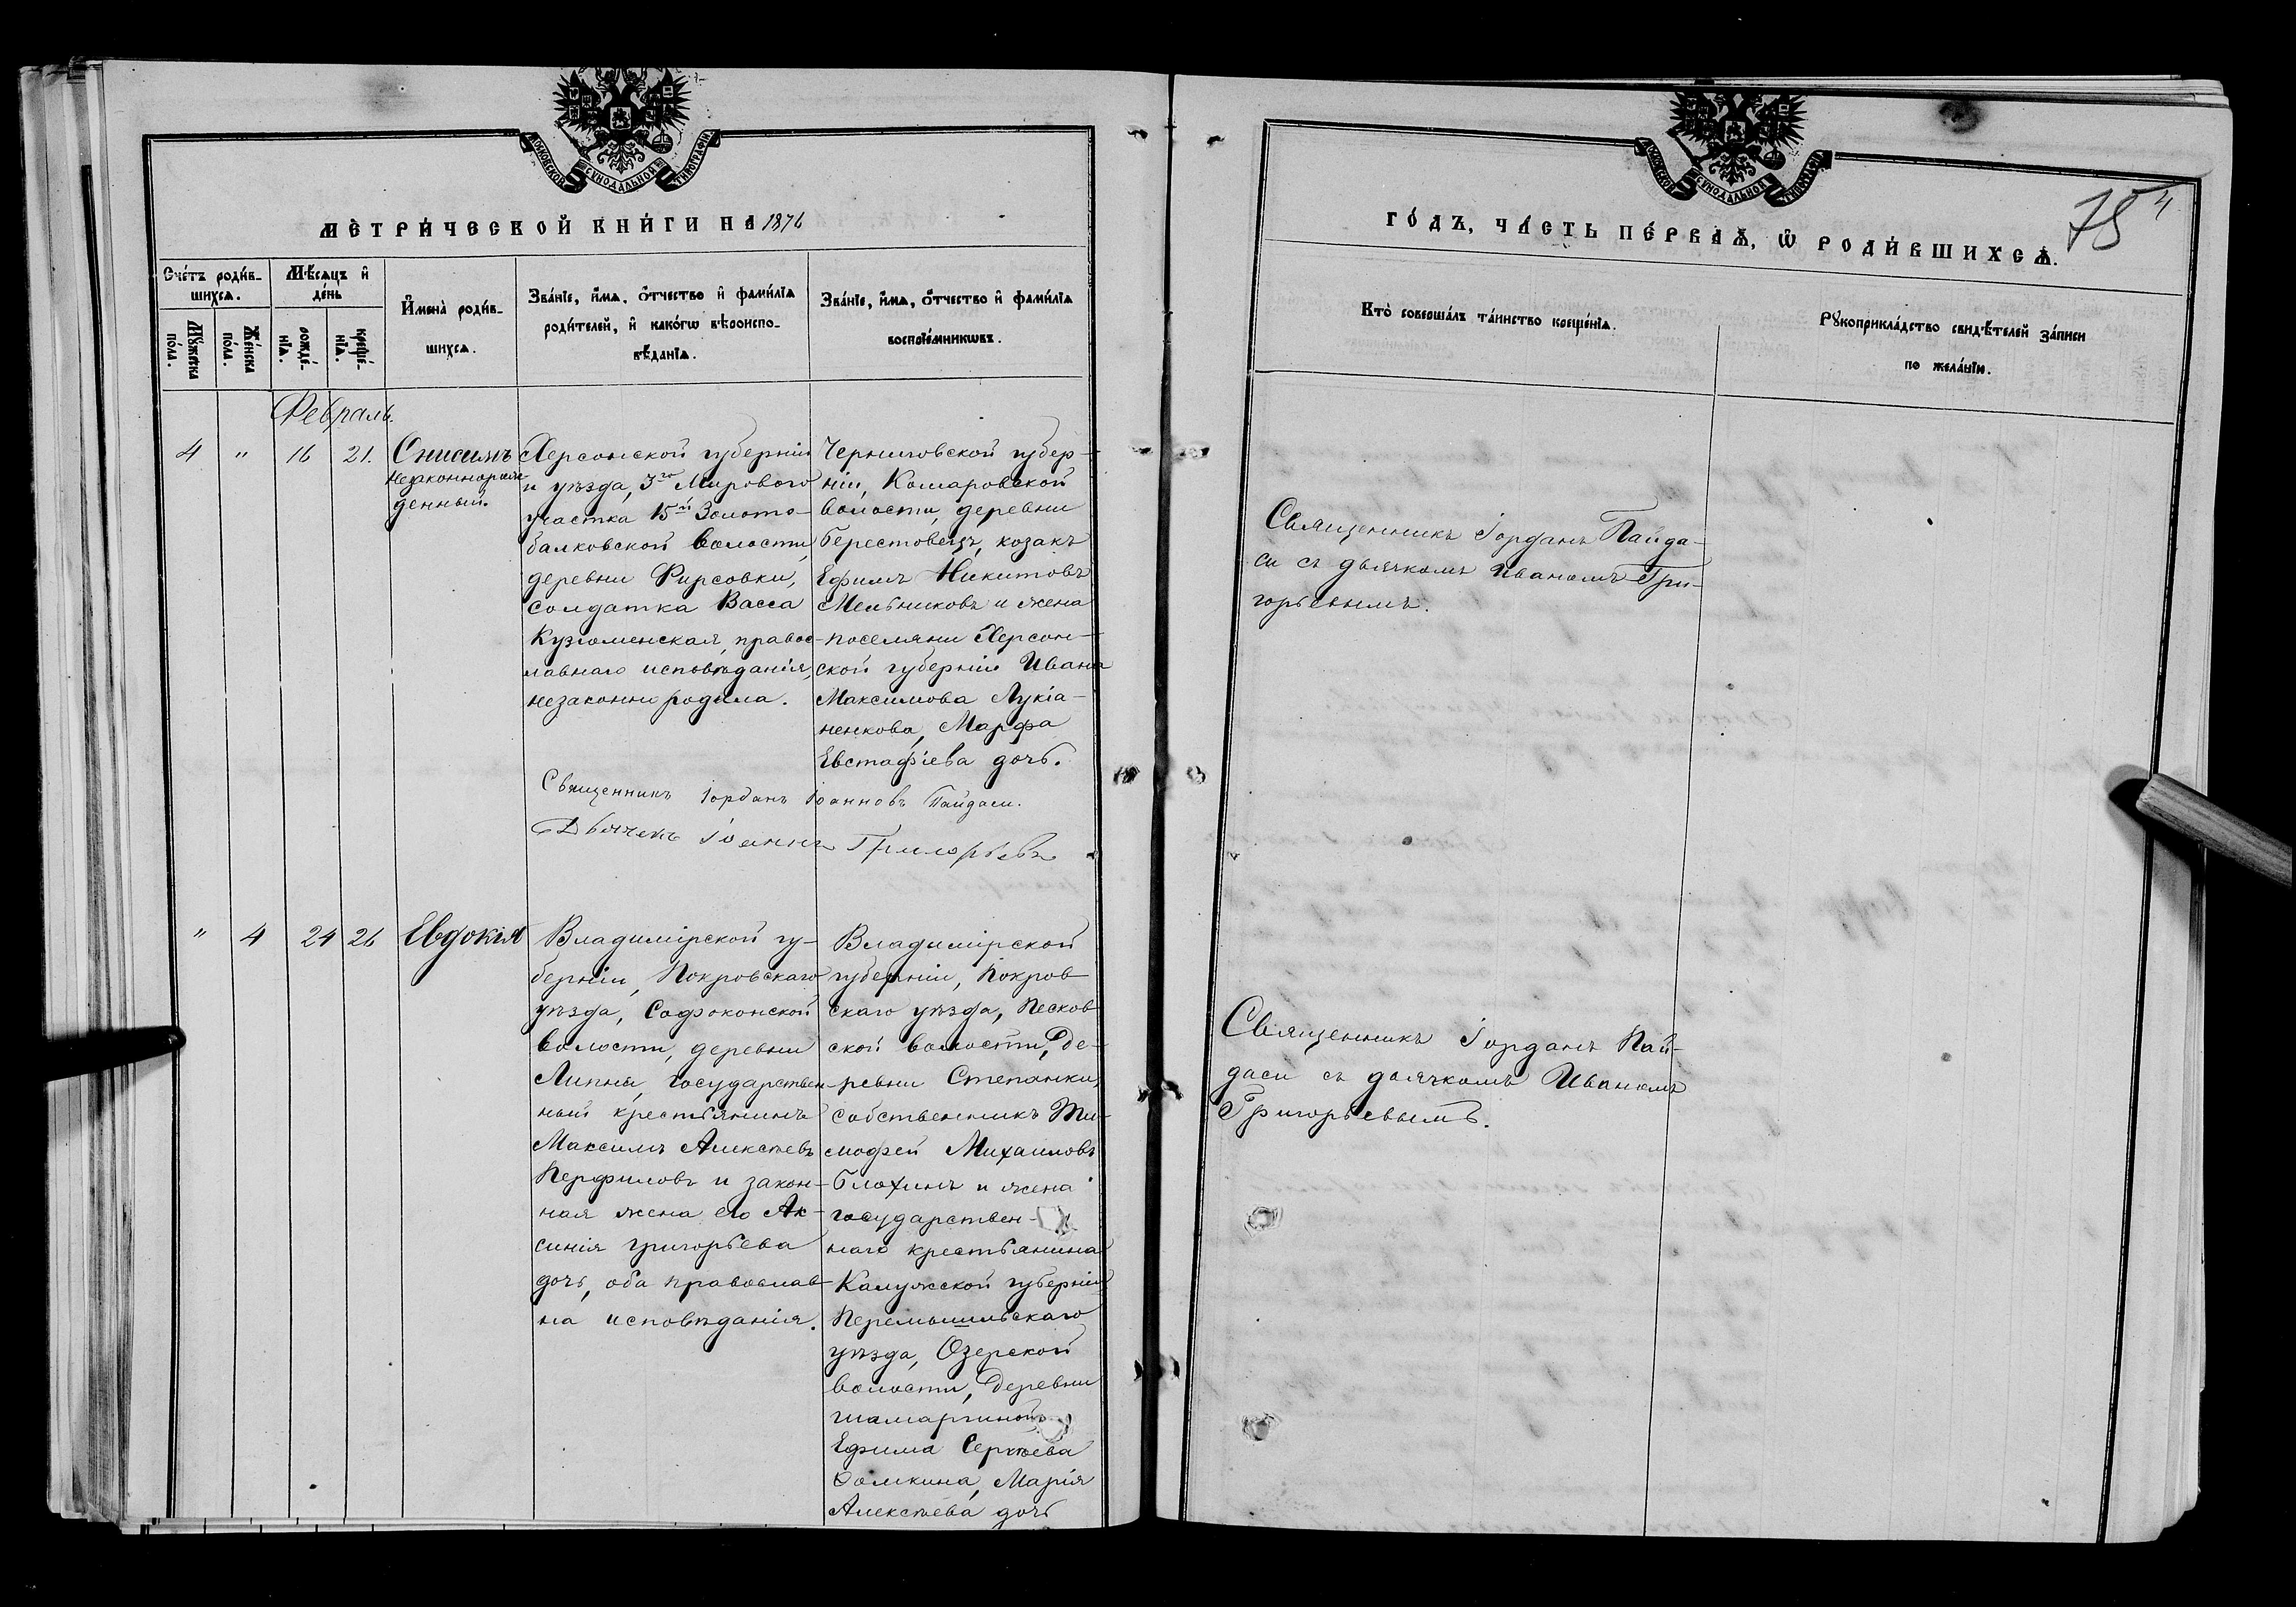 МОСКОВСКОЙ СУНОДАЛЬНОЙ ТИПОГРАФИИ
МЕТРИ́ЧЕСКОЙ КНИ́ГИ НА 1876
Сче́тъ роди́в-
шихсѧ.
Мѣ́сѧцъ и҆
де́нь
Мꙋ́жеска
по́ла.
Же́нска
по́ла.
рожде́-
нїѧ.
креще́-
нїѧ.
И҆мена̀ роди́в-
шихсѧ.
Зва́нїе, и҆́мѧ, ѻ҆́тчество и҆ фами́лїѧ
роди́телей, и҆ како́гѡ вѣроиспо-
вѣ́данїѧ.
Зва́нїе, и҆́мѧ, ѻ҆́тчество и҆ фами́лїѧ
воспрїе́мникѡвъ.
Февраль.
4 " 16 21.
Онисимъ
незаконнорож-
денный.
Херсонской губерніи
и уѣзда, 3го Мирового
участка 15й Золото-
балковской волости,
деревни Фирсовки,
солдатка Васса
Кузьменская, правос-
лавнаго исповѣданія,
незаконно родила.
Черниговской губер-
ніи, Комаровской
волости, деревни
Берестовецъ, козакъ
Ефимъ Никитовъ
Мельниковъ и жена
поселяни Херсон-
ской губерніи Ивана
Максимова Лукіа-
ненкова, Марфа
Евстафіева дочь.
Священникъ Іорданъ Іоанновъ Пайдаси.
Дьячекъ Іоаннъ Григорьевъ
" 4 24 26
Евдокія
Владимірской гу-
берніи, Покровскаго
уѣзда, Сафоконской
волости, деревни
Липни, государствен-
ный крестьянинъ
Максимъ Алексѣевъ
Перфиловъ и закон-
ная жена его Ак-
синія Григорьева
дочь, оба православ-
на исповѣданія.
Владимірской
губерніи, Покров-
скаго уѣзда, Песков-
ской волости, де-
ревни Степанки,
собственникъ Ти-
мофей Михаиловъ
Блохинъ и жена
государствен-
наго крестьянина
Калужской губерніи
Перемышльскаго
уѣзда, Озерской
волости, деревни
Шамаргиной
Ефима Сергѣева
Фомкина, Марія
Алексѣева дочь
МОСКОВСКОЙ СУНОДАЛЬНОЙ ТИПОГРАФИИ
75 4
ГО́ДЪ, ЧА́СТЬ ПЕ́РВАѦ, Ѡ҆ РОДИ́ВШИХСѦ.
Кто̀ соверша́лъ та́инство креще́нїѧ.
Рꙋкоприкла́дство свидѣ́телей за́писи
по жела́нїю.
Священникъ Іорданъ Пайда-
си съ дьячкомъ Иваномъ Гри-
горьевымъ.
Священникъ Іорданъ Пай-
даси съ дьячкомъ Иваномъ
Григорьевымъ.